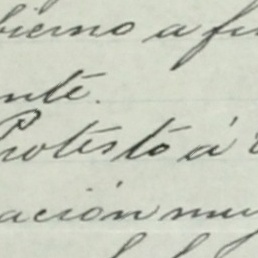 bierno a fu
nte.
Protesto á V
ación muy